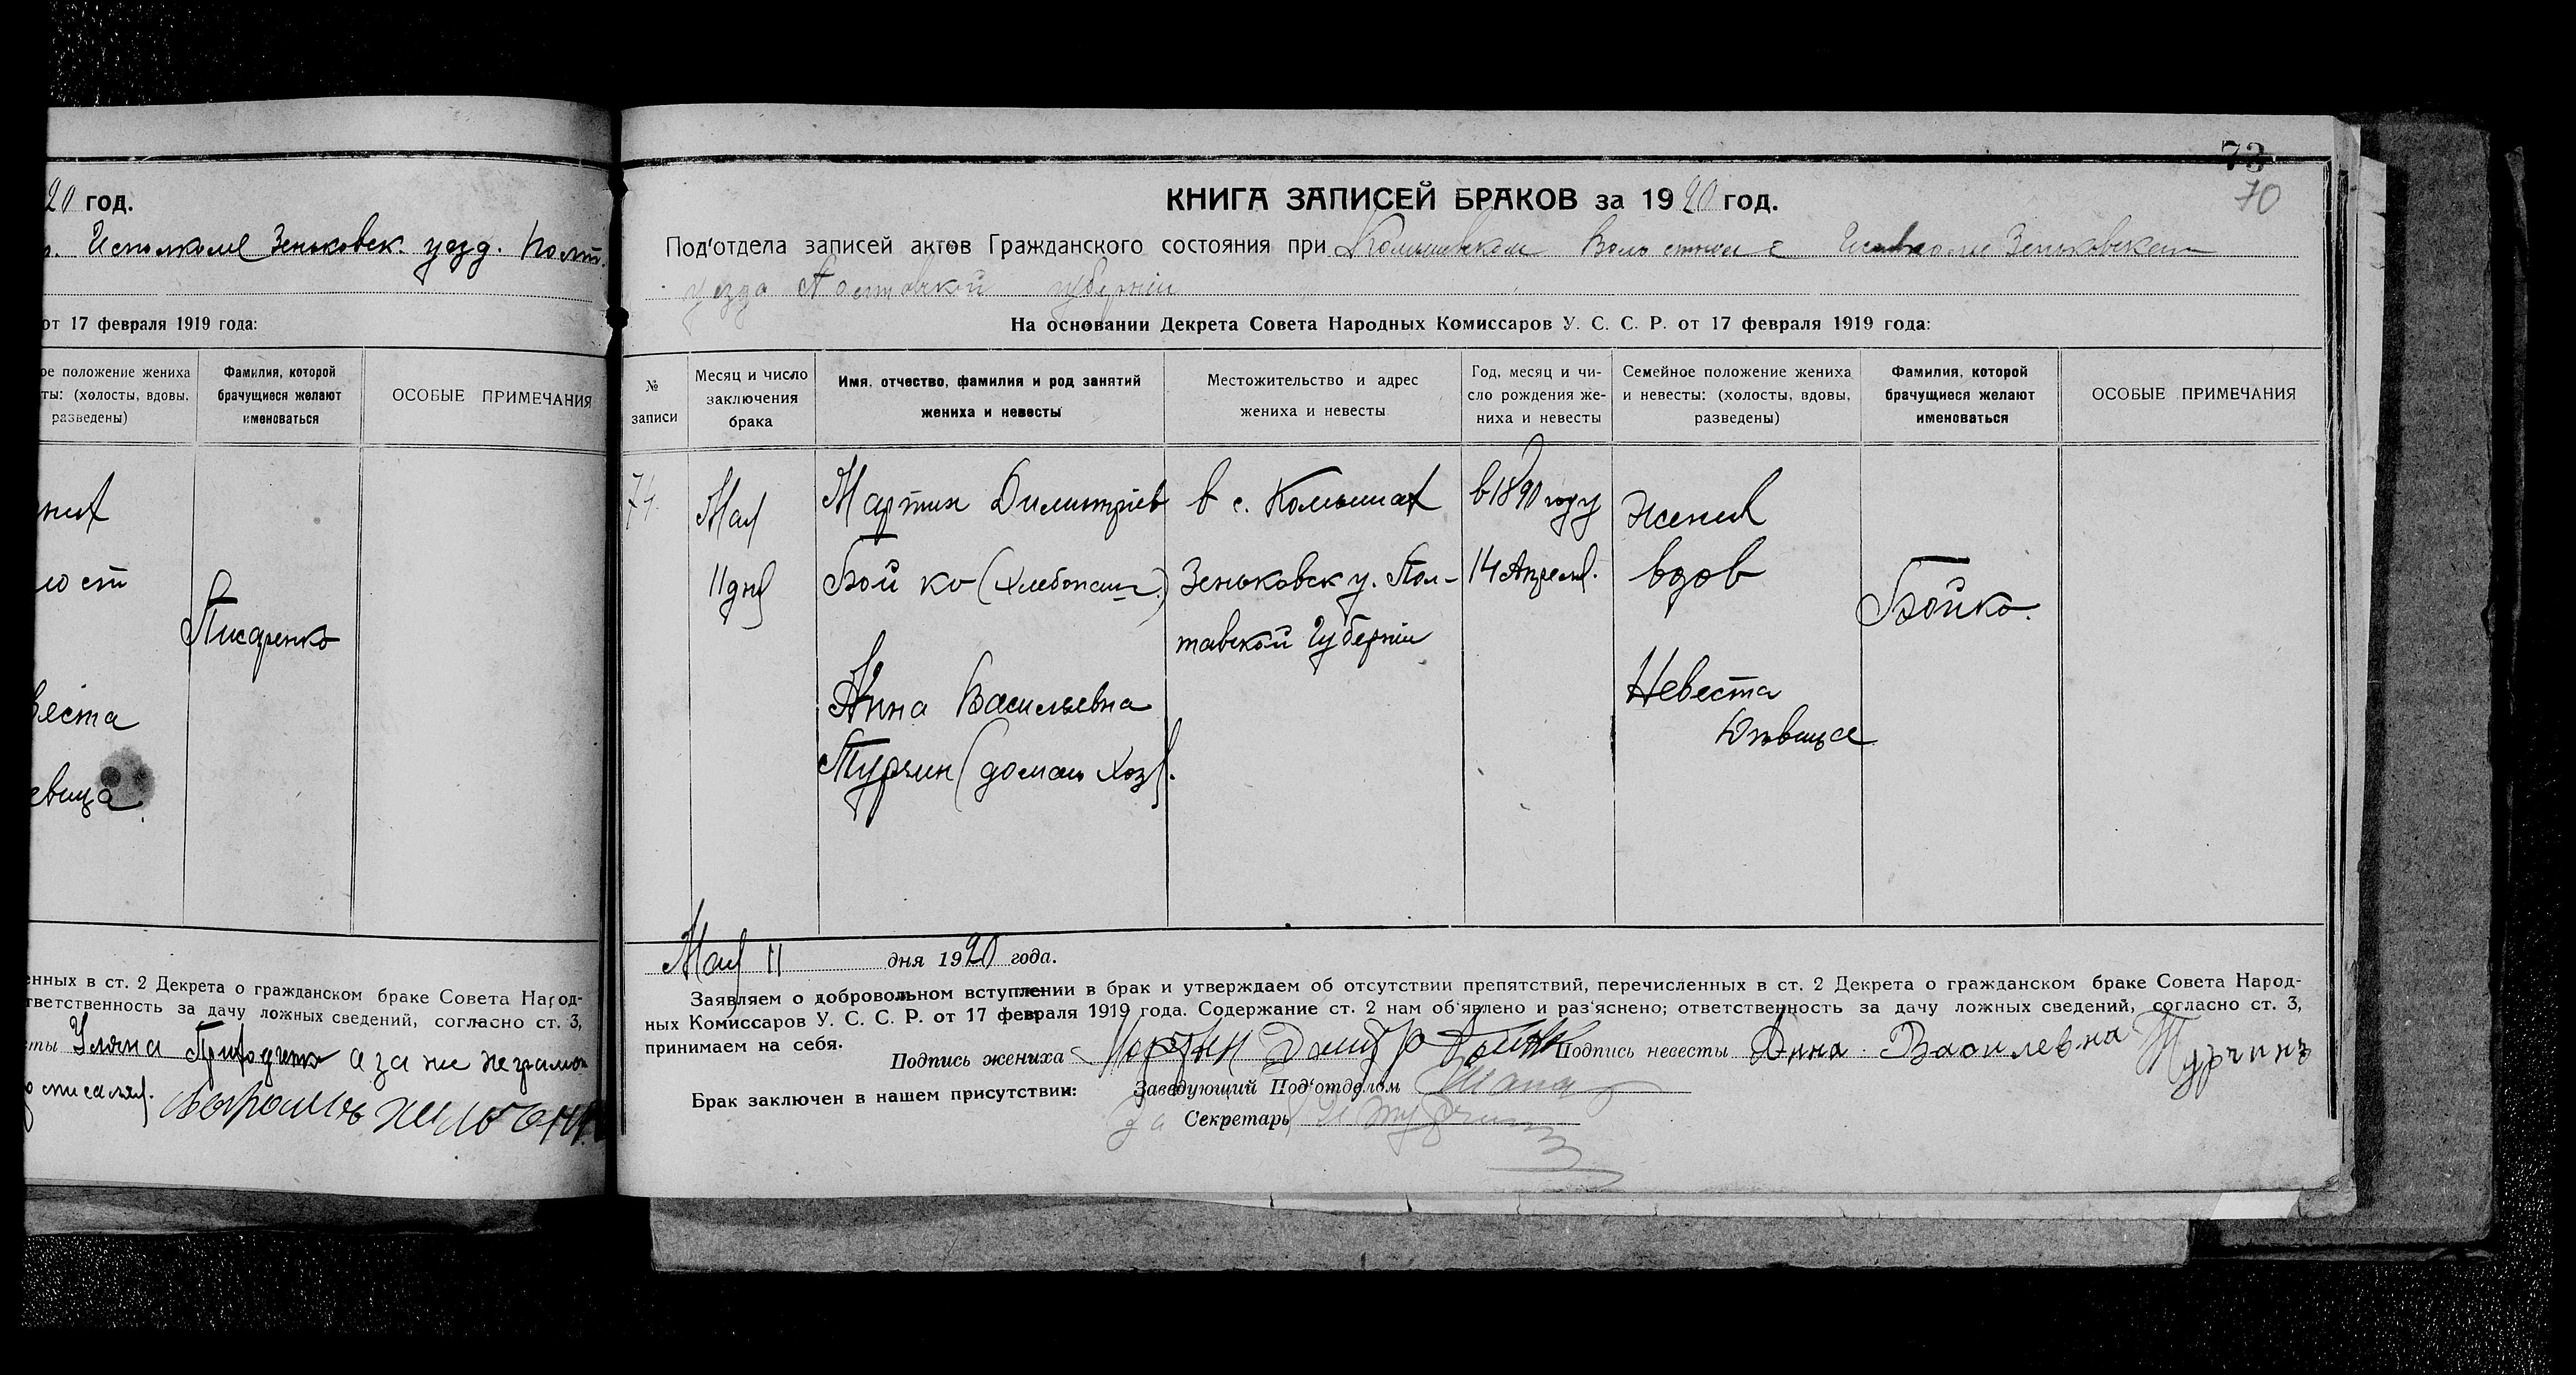 20 год.
Исполкоме Зеньковск. уезд. Полт.
от 17 февраля 1919 года:
ое положение жениха
ты: (холосты, вдовы,
разведены)
Фамилия, которой
брачущиеся желают
именоваться
ОСОБЫЕ ПРИМЕЧАНИЯ
Писаренко
веста
евица
енных в ст. 2 Декрета о гражданском браке Совета Народ-
тветственность за дачу ложных сведений, согласно ст. 3,
ты Уляна
73
70
КНИГА ЗАПИСЕЙ БРАКОВ за 1920 год.
Под'отдела записей актов Гражданского состояния при Зеньковского
уезда Полтавской губернии
На основании Декрета Совета Народных Комиссаров У. С. С. Р. от 17 февраля 1919 года:
№
записи
Месяц и число
заключения
брака
Имя, отчество, фамилия и род занятий
жениха и невесты
Местожительство и адрес
жениха и невесты
Год, месяц и чи-
сло рождения же-
ниха и невесты
Семейное положение жениха
и невесты: (холосты, вдовы,
разведены)
Фамилия, которой
брачущиеся желают
именоваться
ОСОБЫЕ ПРИМЕЧАНИЯ
74.
Мая
11 дня
Мартин Димитріев
Бойко (хлебопаш.)
Анна Васильевна
Турчин (домаш хоз).
в с. Комышах
Зеньковск у. Пол-
тавской Губерніи
в 1890 году
14 Апреля.
Жених
вдов
Невеста
Дѣвица
Бойко.
Мая 11 дня 1920 года.
Заявляем о добровольном вступлении в брак и утверждаем об отсутствии препятствий, перечисленных в ст. 2 Декрета о гражданском браке Совета Народ-
ных Комиссаров У. С. С. Р. от 17 февраля 1919 года. Содержание ст. 2 нам об'явлено и раз'яснено; ответственность за дачу ложных сведений, согласно ст. 3,
принимаем на себя.
Подпись жениха Мартин Дмитро Бойко Подпись невесты Анна Василевна Турчинъ
Брак заключен в нашем присутствии:
Заведующий Под'отделом
Секретарь